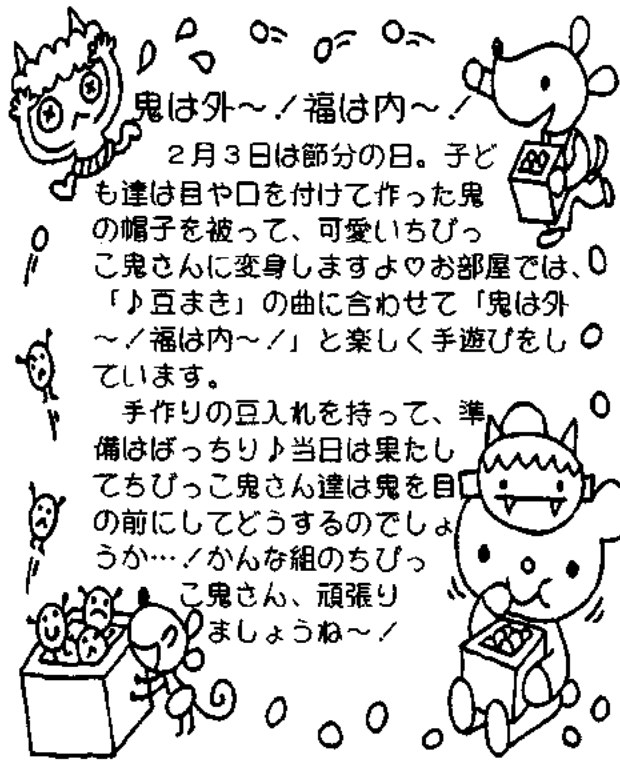 鬼は外～！福は内～！
２月３日は節分の日。子ど
も達は目や口を付けて作った鬼
の帽子を被って、可愛いちびっ
こ鬼さんに変身しますよ♡お部屋では、
「♪豆まき」の曲に合わせて「鬼は外
～！福は内～！」と楽しく手遊びをし
ています。
手作りの豆入れを持って、準
備はばっちり♪当日は果たし
てちびっこ鬼さん達は鬼を目
の前にしてどうするのでしょ
うか…！かんな組のちびっ
こ鬼さん、頑張り
ましょうね～！